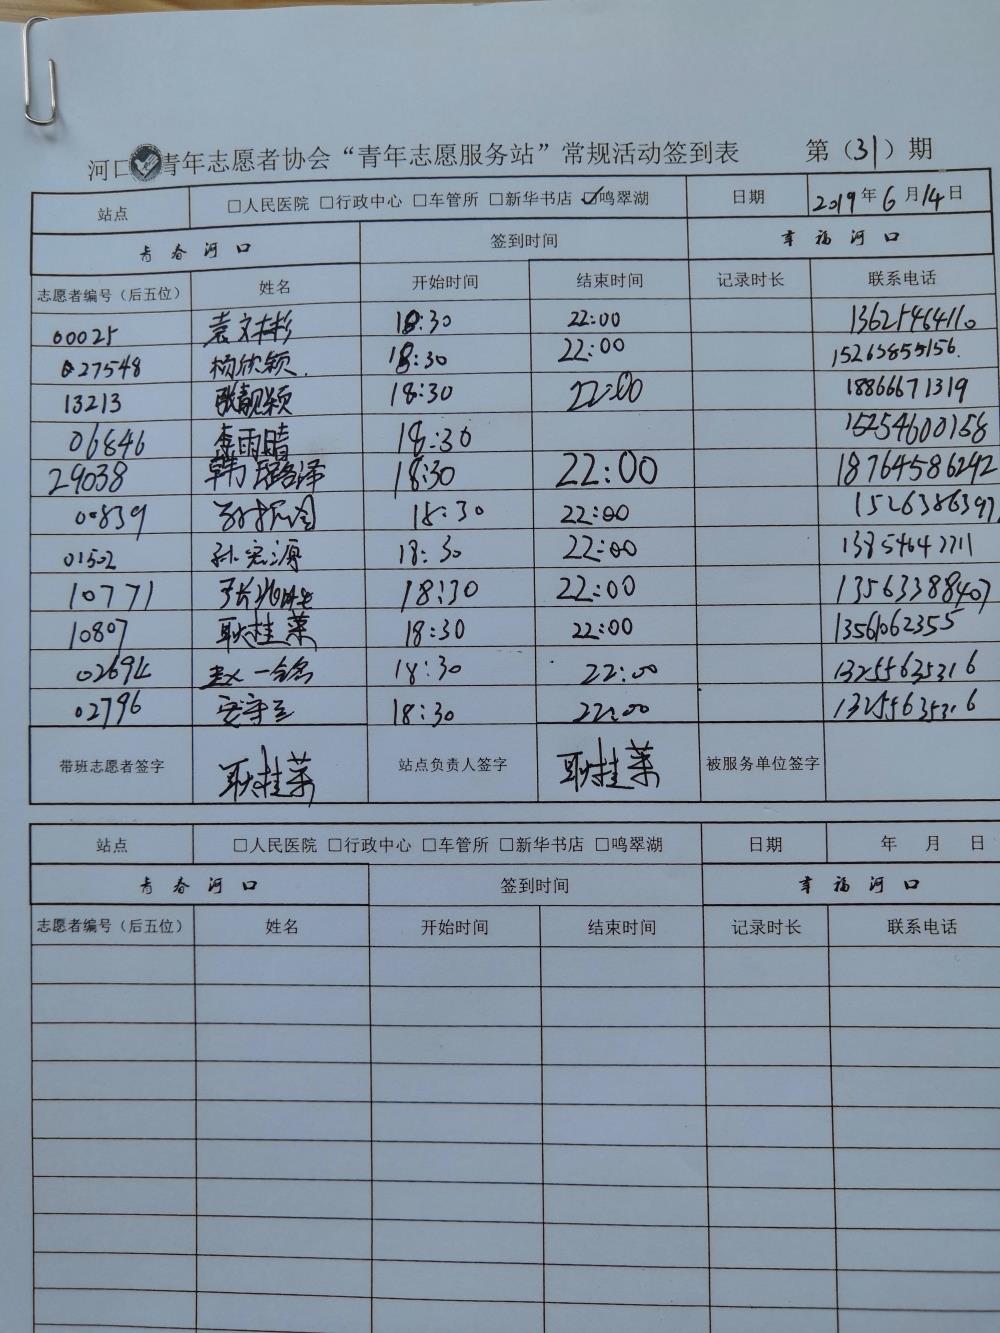 河口青年志愿者协会“青年志愿服务站”常规活动签到表 第（31）期
站点 □人民医院 □行政中心 □车管所 □新华书店 ☑鸣翠湖 日期 2019年6月14日
青春河口 签到时间 幸福河口
志愿者编号（后五位） 姓名 开始时间 结束时间 记录时长 联系电话
00025 袁文彬 18:30 22:00 13625464110
27548 杨欣颖 18:30 22:00 15263855156
13213 耿靓颖 18:30 22:00 18866671319
06846 李雨晴 18:30 15254600158
29038 韩璐泽 18:30 22:00 18764586242
00839 18:30 22:00 1526386397
01502 孙宏海 18:30 22:00
10771 18:30 22:00 13563388407
10807 耿桂菜 18:30 22:00 13561062355
02694 赵一鸣 18:30 22:00 13255635316
02796 安守玉 18:30 22:00 13255635316
带班志愿者签字 耿桂菜 站点负责人签字 耿桂菜 被服务单位签字
站点 □人民医院 □行政中心 □车管所 □新华书店 □鸣翠湖 日期 年 月 日
青春河口 签到时间 幸福河口
志愿者编号（后五位） 姓名 开始时间 结束时间 记录时长 联系电话